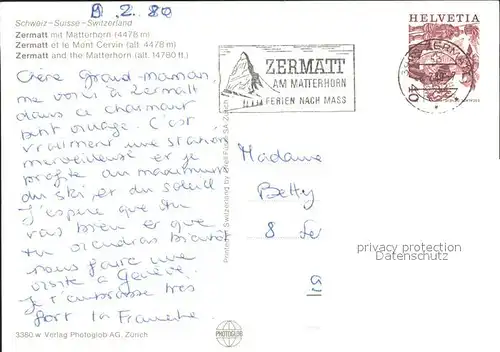 9.2.80
Schweiz - Suisse - Switzerland
Zermatt mit Matterhorn (4478 m)
Zermatt et le Mont Cervin (alt. 4478 m)
Zermatt and the Matterhorn (alt. 14780 ft.)
Chère Grand-maman
me voici à Zermatt
dans ce charmant
petit village. C'est
vraiment une station
merveilleuse et je
profite au maximum
du ski et du soleil
J'espère que tu
vas bien et que
tu viendras bientôt
nous faire une
visite à Genève.
Je t'embrasse très
fort la
3380.w Verlag Photoglob AG, Zürich
Printed in Switzerland by Orell Füssli SA Zürich
PHOTOGLOB
ZERMATT
AM MATTERHORN
FERIEN NACH MASS
HELVETIA
40
ZERMATT
Madame
Betty
8
privacy protection
Datenschutz